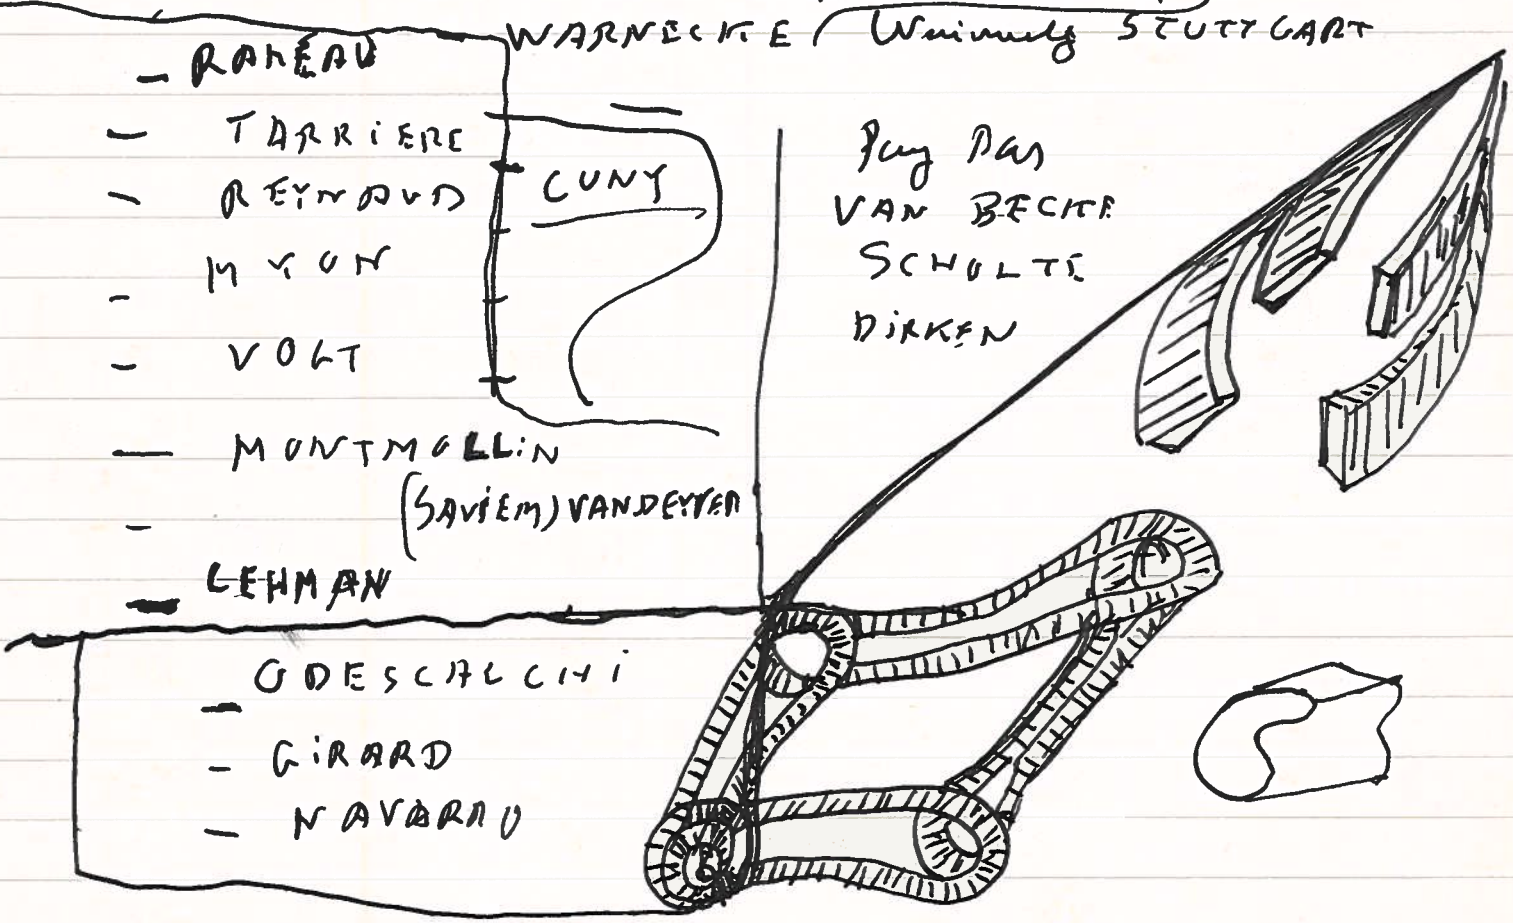 WARNECKE STUTTGART
- RAMEAU
- TARRIERE
- REYNAUD
- MYON
- VOLT
- MONTMOLLIN
(SAVIEM) VANDEVYER
- LEHMAN
CUNY
Pay Bas
VAN BECKE
SCHOLTE
DIRKEN
- ODESCALCHI
- GIRARD
- NAVARRO